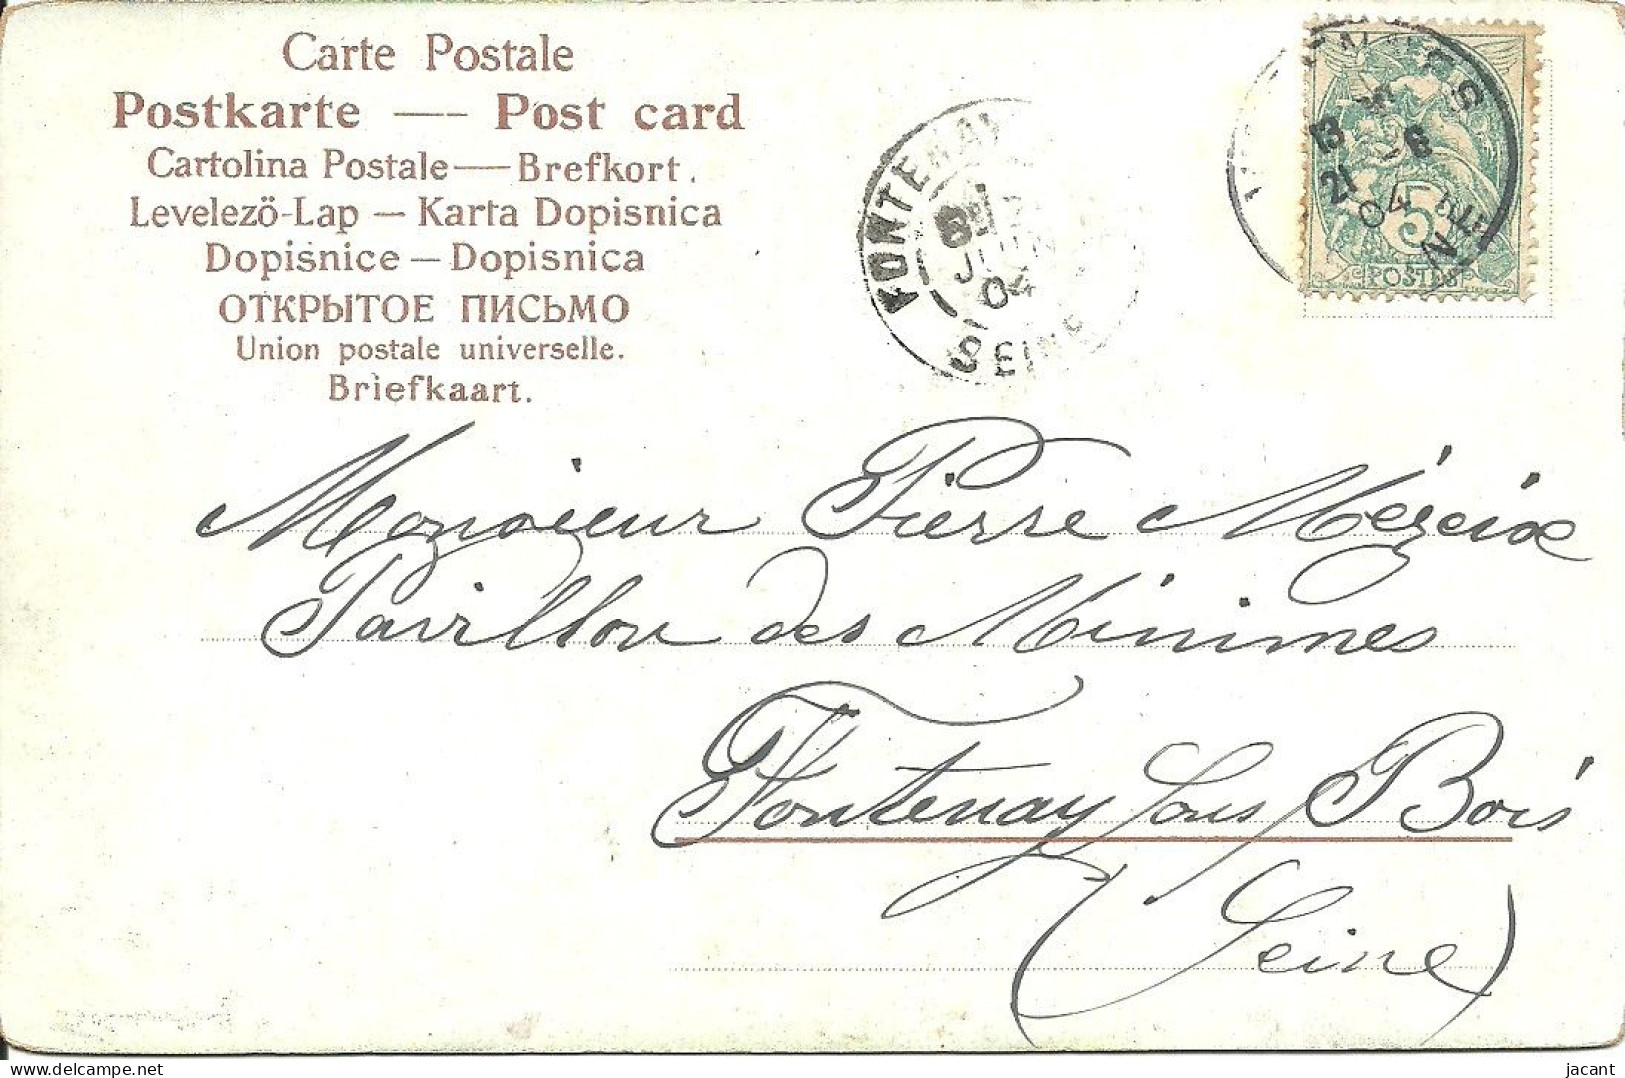 Carte Postale
Postkarte — Post card
Cartolina Postale — Brefkort.
Levelező-Lap — Karta Dopisnica
Dopisnice — Dopisnica
ОТКРЫТОЕ ПИСЬМО
Union postale universelle.
Briefkaart.
FONTENAY
JUIN
04
SEINE
13
21 6
04
5
POSTES
Monsieur Pierre Mézeix
Pavillon des Minimes
Fontenay sous Bois
(Seine)
jacant